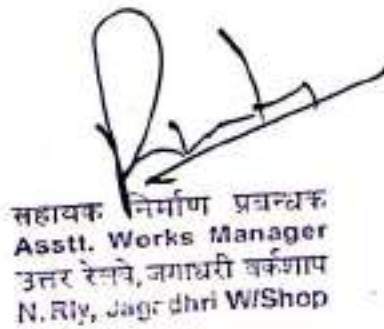 सहायक निर्माण प्रबन्धक
Asstt. Works Manager
उत्तर रेलवे, जगाधरी वर्कशाप
N. Rly, Jagadhri W/Shop